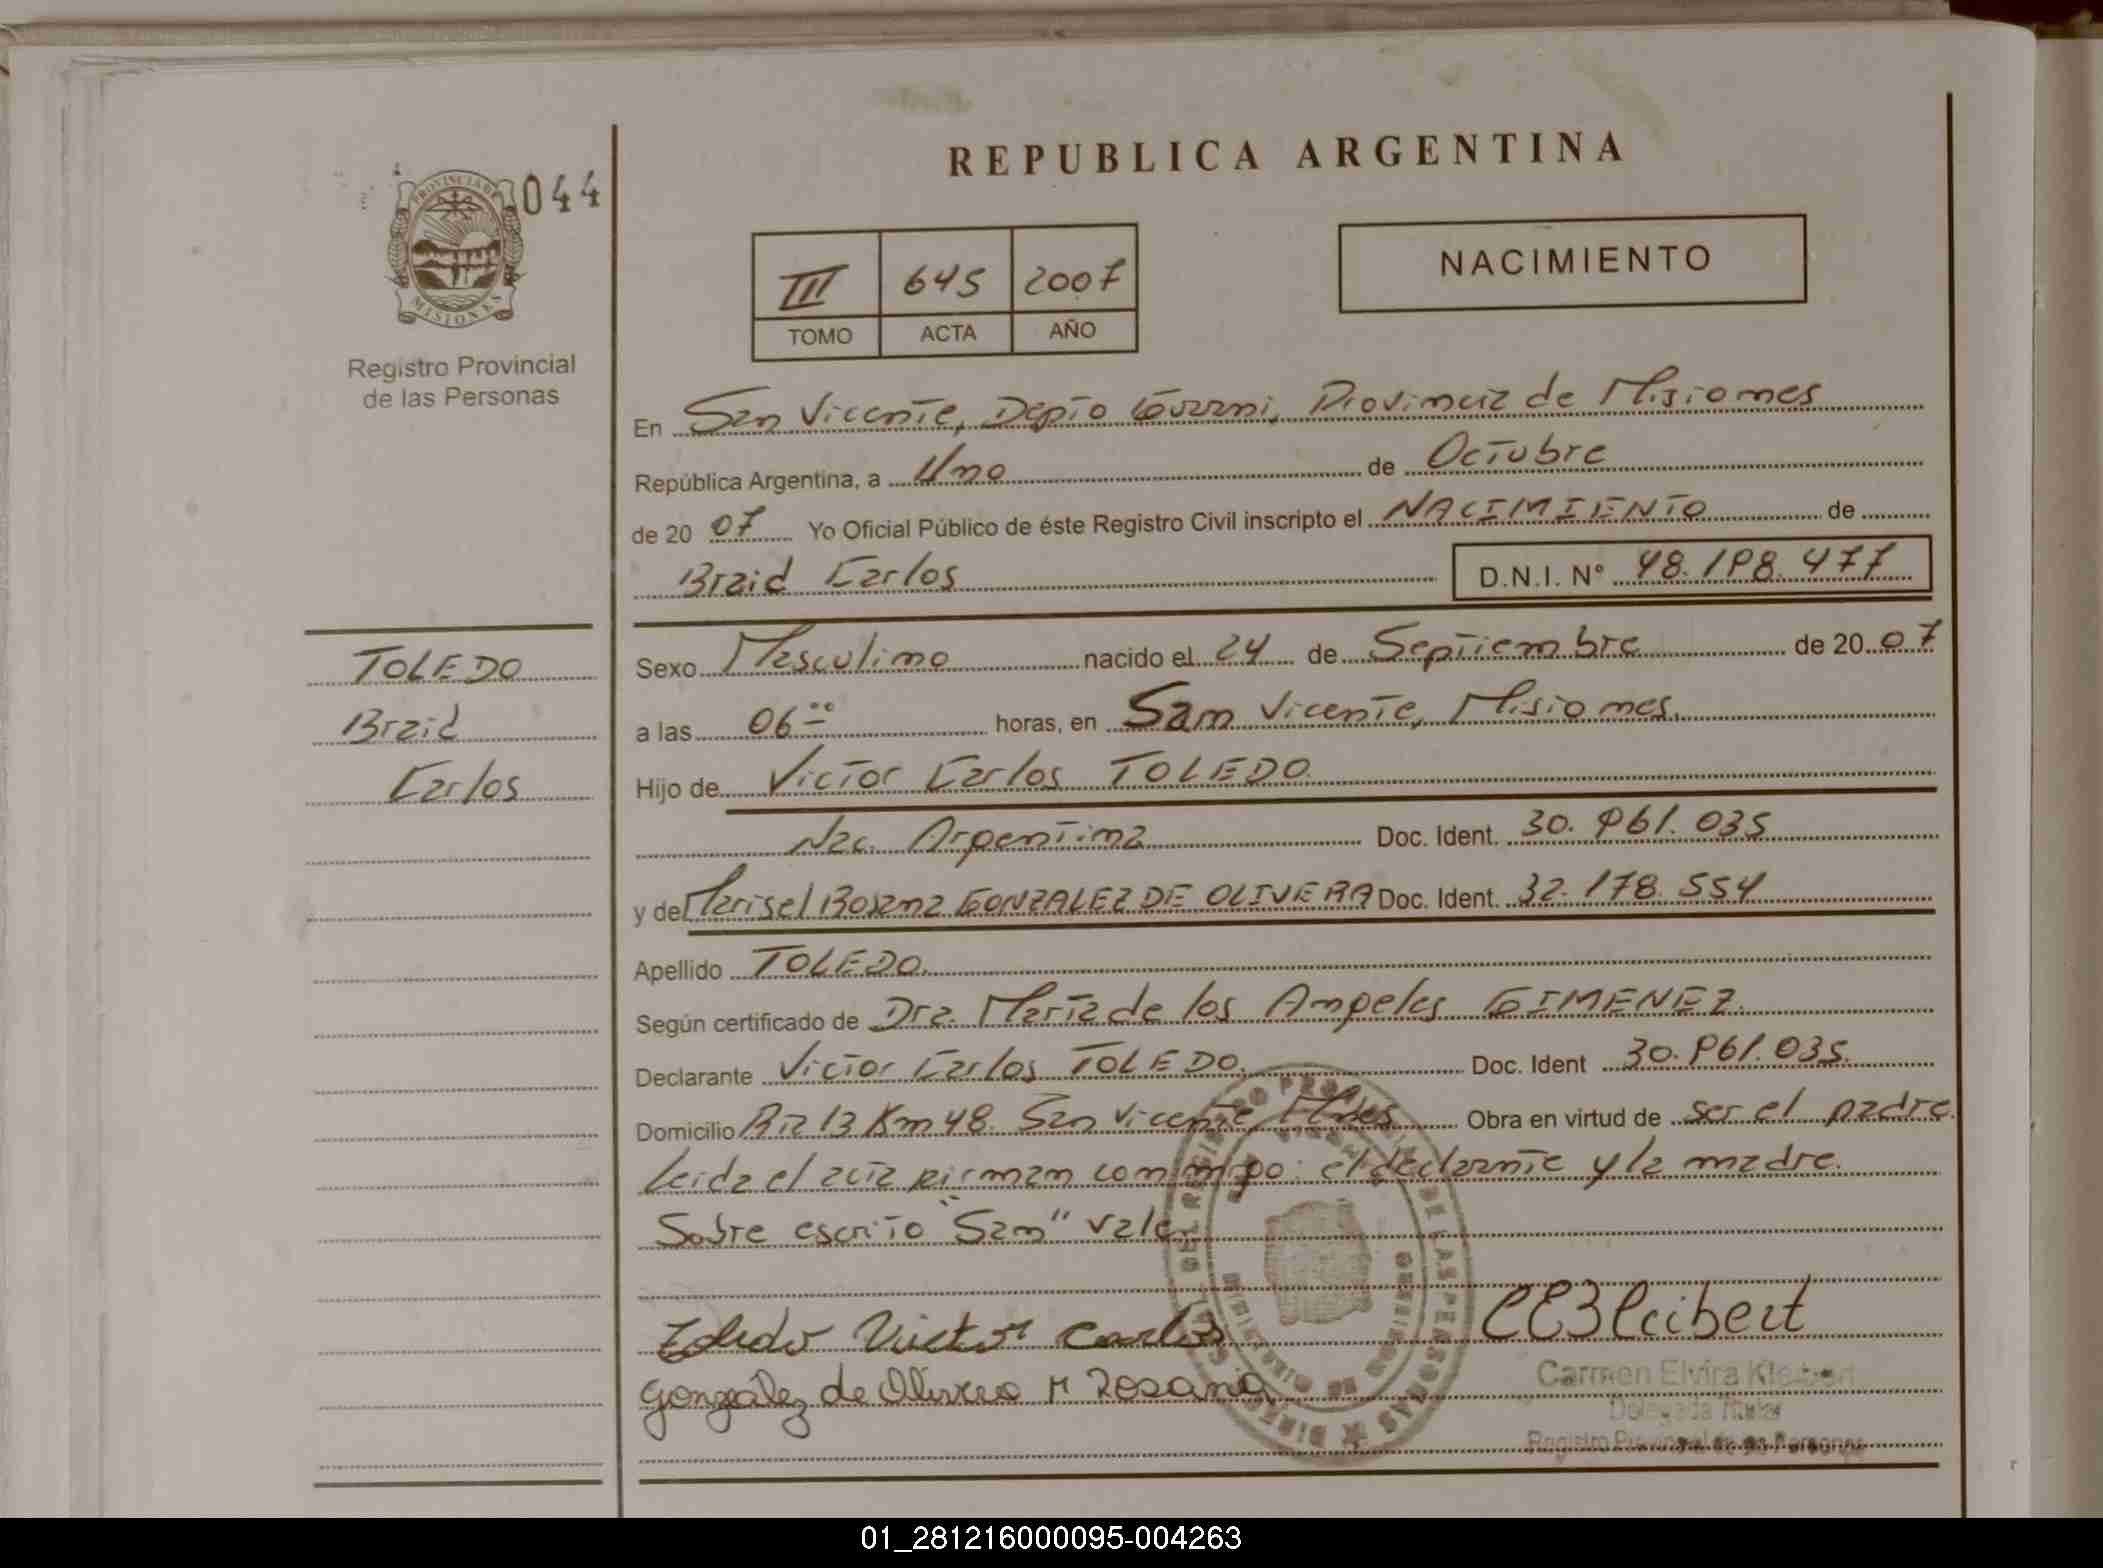 REPUBLICA ARGENTINA
PROVINCIA DE
MISIONES
044
Registro Provincial
de las Personas
NACIMIENTO
III 645 2007
TOMO ACTA AÑO
En San Vicente, Depto Guarani, Provincia de Misiones
República Argentina, a Uno de Octubre
de 2007 Yo Oficial Público de éste Registro Civil inscripto el NACIMIENTO de
Braid Carlos D.N.I. Nº 48.198.477
TOLEDO
Braid
Carlos
Sexo Masculino nacido el 24 de Septiembre de 2007
a las 06 00 horas, en San Vicente, Misiones.
Hijo de Victor Carlos TOLEDO
Nac. Argentina Doc. Ident. 30.961.035
y de Marisel Rosana GONZALEZ DE OLIVERA Doc. Ident. 32.178.554
Apellido TOLEDO.
Según certificado de Dra. Maria de los Angeles GIMENEZ.
Declarante Victor Carlos TOLEDO. Doc. Ident 30.961.035.
Domicilio Rta 13 Km 48. San Vicente, Mnes Obra en virtud de ser el padre.
Leida el acta firman conmigo: el declarante y la madre.
Sobre escrito "San" vale.
Toledo Victor Carlos
Gonzalez de Olivera M Rosana
Carmen Elvira Kleibert
Delegada Titular
Registro Provincial de las Personas
01_281216000095-004263